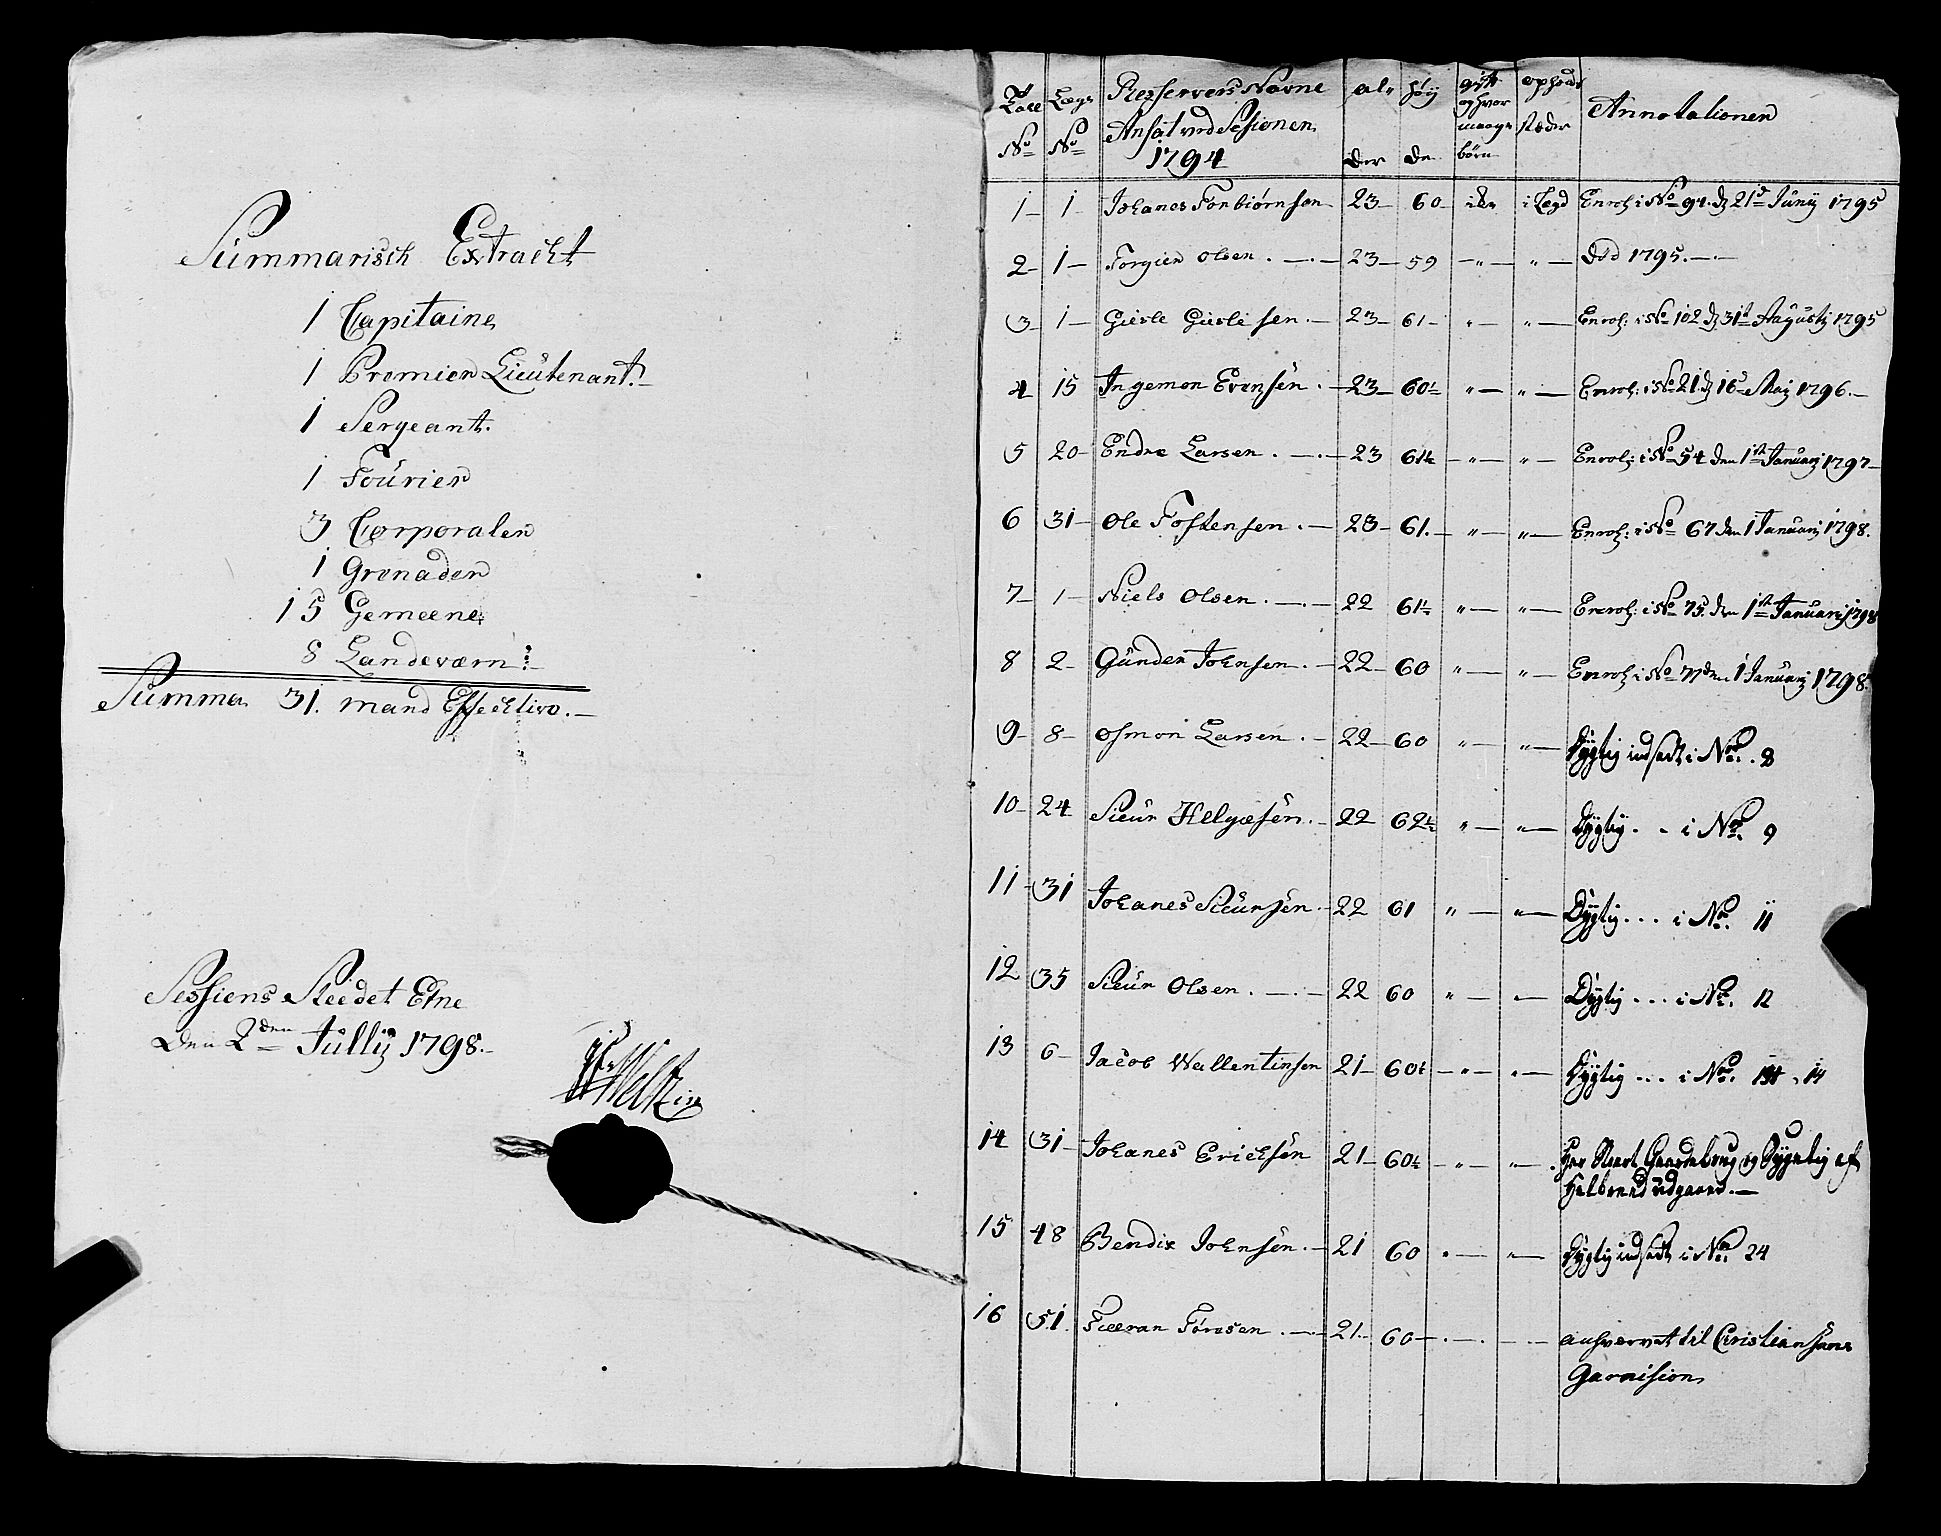 Summarisch Extracht
1 Capitaine
1 Premier Lieutenant.
1 Sergeant.
1 Fourier
3 Corporaler
1 Grenader
15 Gemeene
8 Landeværn
Summa 31. mand Effectivo.
Sessions Steedet Etne
Den 2den Jullij 1798.
Tall No Lægs No Resservers Navne Ansat ved Sesionen 1794 alder høyde gift og hvor mange børn ophold steder Annotationer
1 1 Johanes Torbiørnsen 23 60 ikke i Legd Enrol: i No 94. d 21d Junij 1795
2 1 Torgier Olsen 23 59 " " Død 1795.
3 1 Gierle Gierlesen 23 61 " " Enrol: i No 102 d 31t Augustij 1795
4 15 Ingemon Evensen 23 60½ " " Enrol: i No 21 d 16 Maij 1796.
5 20 Endre Larsen 23 61½ " " Enrol: i No 54 den 1st Januarij 1797
6 31 Ole Tostensen 23 61. " " Enrol: i No 67 den 1 Januarij 1798.
7 1 Niels Olsen 22 61½ " " Enrol: i No 75. den 1st Januarij 1798
8 2 Gunder Johnsen 22 60 " " Enrol: i No 77 den 1 Januarij 1798.
9 8 Osmon Larsen 22 60 " " Dygtig indsadt i No. 8
10 24 Sieur Helgesen 22 62½ " " Dygtig . . i No. 9
11 31 Johanes Sieursen 22 61 " " Dygtig . . . i No. 11
12 35 Sieur Olsen 22 60 " " Dygtig . . . i No. 12
13 6 Jacob Wallentinsen 21 60½ " " Dygtig . . . i No. 14
14 31 Johanes Ericksen 21 60½ " " Har Gaardebrug og Dygtig af
Halbered udgaaer.
15 48 Bendix Johnsen 21 60 " " Dygtig indsadt i No 24
16 51 Toresen 21. 60 anhvervet til Christiansans
Garnision